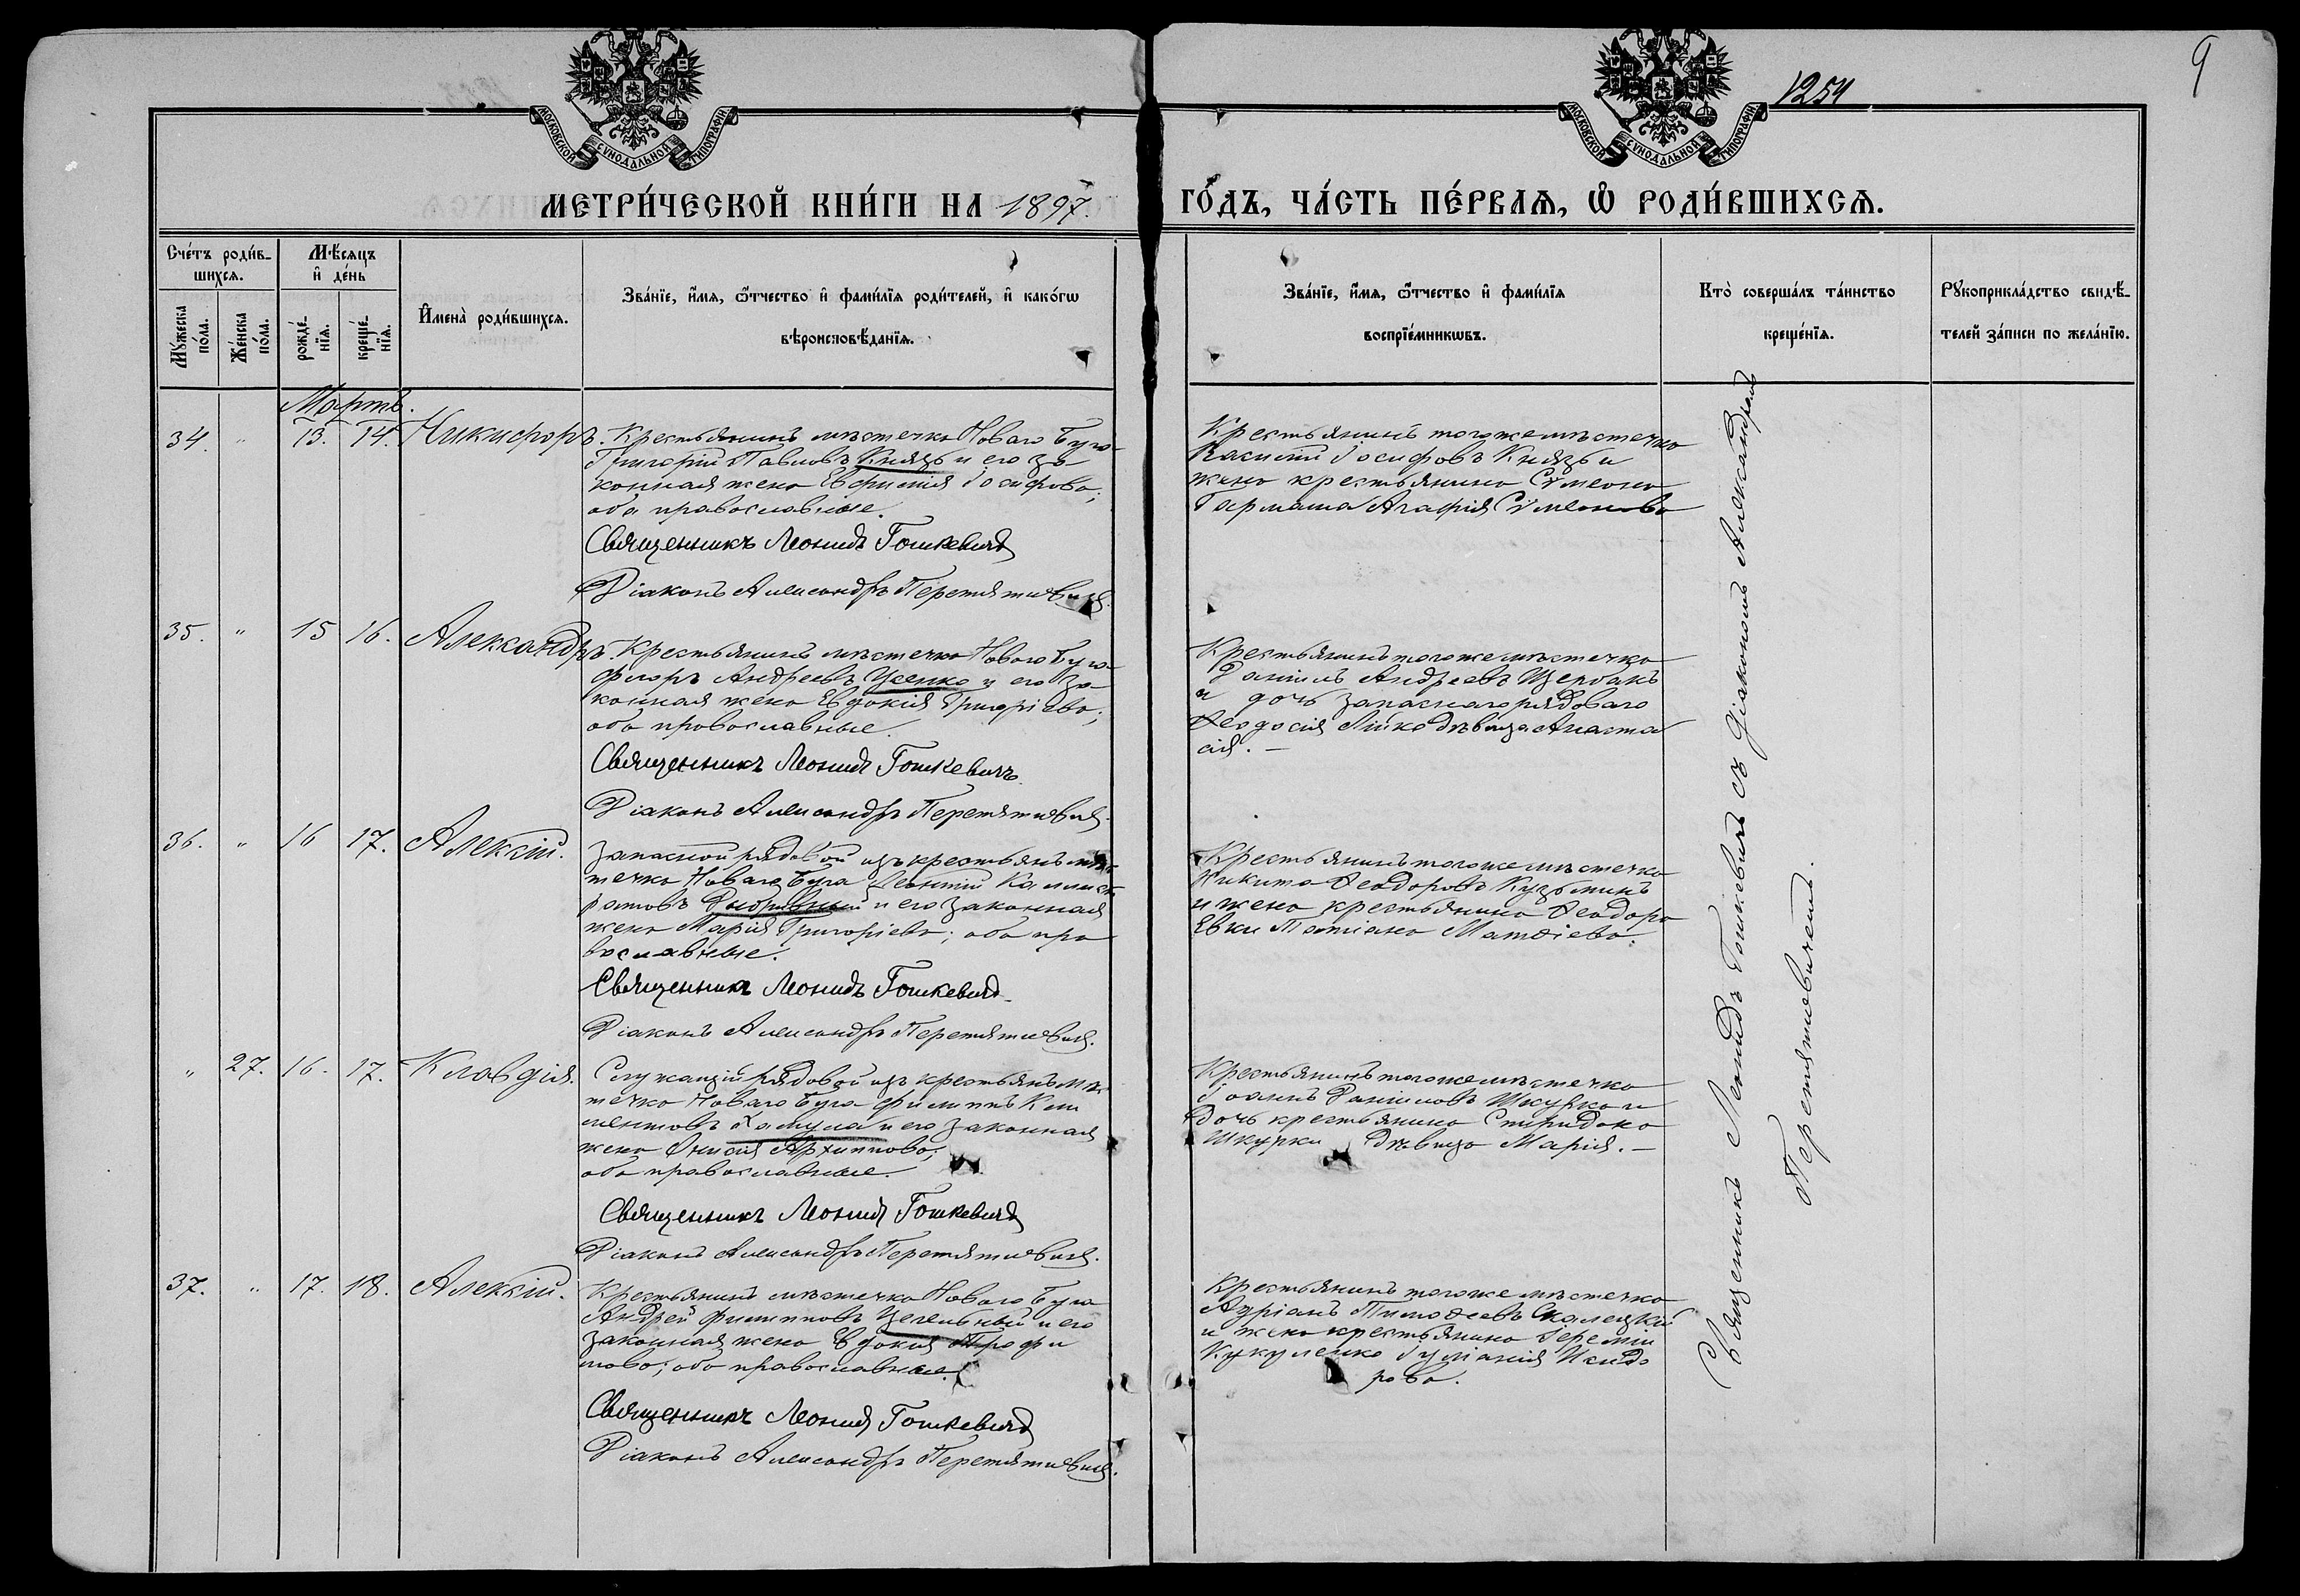 9
1254
МОСКОВСКОЙ СѴНОДАЛЬНОЙ ТИПОГРАФІИ
МОСКОВСКОЙ СѴНОДАЛЬНОЙ ТИПОГРАФІИ
МЕТРИ́ЧЕСКОЙ КНИ́ГИ НА 1897. ГО́ДЪ, ЧА́СТЬ ПЕ́РВАѦ, Ѡ҆ РОДИ́ВШИХСѦ.
Сче́тъ роди́в-
шихсѧ.
Мꙋ́жеска по́ла.
Же́нска по́ла.
Мѣ́сѧцъ
и҆ де́нь
рожде́-
нїѧ.
креще́-
нїѧ.
И҆мена̀ роди́вшихсѧ.
Зва́нїе, и҆́мѧ, ѻ҆́тчество и҆ фами́лїѧ роди́телей, и҆ како́гѡ
вѣроисповѣ́данїѧ.
Зва́нїе, и҆́мѧ, ѻ҆́тчество и҆ фами́лїѧ
воспрїе́мникѡвъ.
Кто̀ соверша́лъ та́инство
креще́нїѧ.
Рꙋкоприкла́дство свидѣ́-
телей за́писи по жела́нїю.
Мартъ.
34. " 13. 14. Никифоръ.
Крестьянинъ мѣстечка Новаго Буга
Григорій Павловъ Князь и его за-
конная жена Евфимія Іосифова;
оба православные.
Священникъ Леонидъ Гошкевичъ
Діаконъ Александръ Перетятковичъ.
Крестьянинъ тогоже мѣстечка
Василій Іосифовъ Князь и
жена крестьянина Сѵмеона
Гармаша Агафія Сѵмеонова
35. " 15 16. Александръ.
Крестьянинъ мѣстечка Новаго Буга
Флоръ Андреевъ Усенко и его за-
конная жена Евдокія Григоріева;
оба православные.
Священникъ Леонидъ Гошкевичъ
Діаконъ Александръ Перетятковичъ.
Крестьянинъ тогоже мѣстечка
Даніилъ Андреевъ Щербакъ
и дочь запаснаго рядоваго
Ѳеодосія дѣвица Анаста
сія. —
36. " 16 17. Алексій.
Запасной рядовой изъ крестьянъ мѣс-
течка Новаго Буга Леонтій Каллист
ратовъ и его законная
жена Марія Григоріева; оба пра
вославные.
Священникъ Леонидъ Гошкевичъ
Діаконъ Александръ Перетятковичъ.
Крестьянинъ тогоже мѣстечка
Никита Ѳеодоровъ Кузьминъ
и жена крестьянина Ѳеодора
Евки Татіана Матѳіева.
" 27. 16. 17. Клавдія.
Служащій рядовой изъ крестьянъ мѣс-
течка Новаго Буга Филиппъ Кли
ментовъ и его законная
жена Анисія Архиппова;
оба православные.
Священникъ Леонидъ Гошкевичъ
Діаконъ Александръ Перетятковичъ.
Крестьянинъ тогоже мѣстечка
Іоаннъ Даніиловъ Шкурка и
дочь крестьянина Спиридона
Шкурки дѣвица Марія. —
37. " 17. 18. Алексій.
Крестьянинъ мѣстечка Новаго Буга
Андрей Филипповъ и его
законная жена Евдокія Трофи
мова; оба православные.
Священникъ Леонидъ Гошкевичъ
Діаконъ Александръ Перетятковичъ.
Крестьянинъ тогоже мѣстечка
Адріанъ Тимоѳеевъ Скалецкій
и жена крестьянина Іереміи
Кукуленко Іуліанія Исидо
рова.
Священникъ Леонидъ Гошкевичъ съ діакономъ Александромъ
Перетятковичемъ.